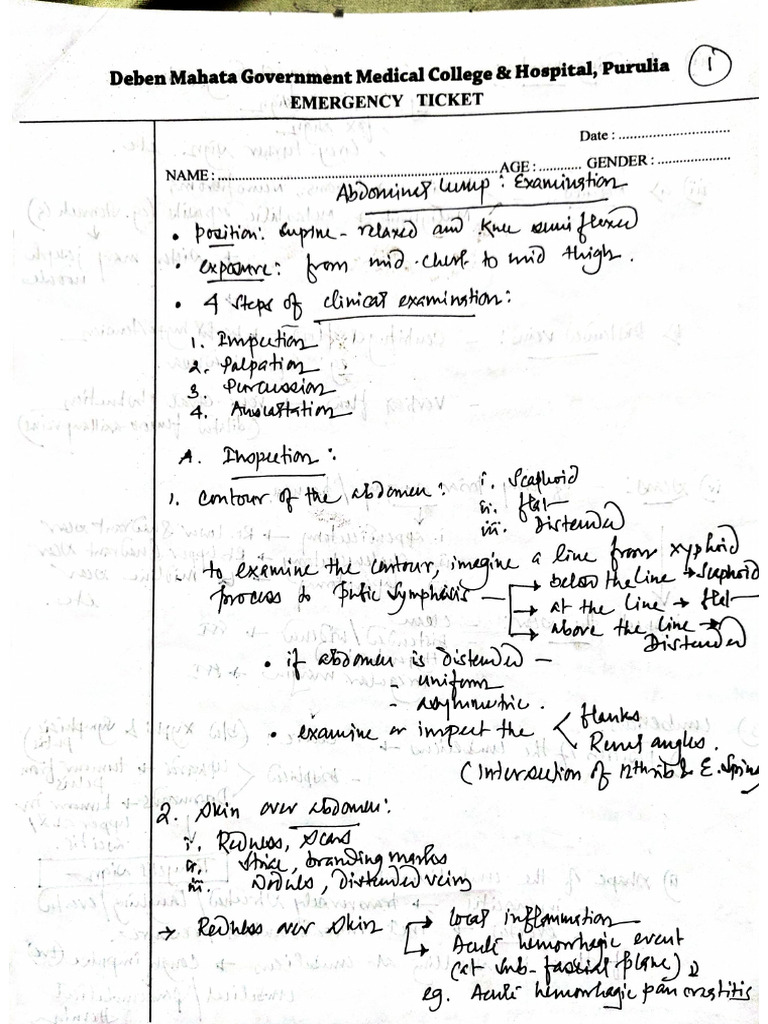 Deben Mahata Government Medical College & Hospital, Purulia
1
EMERGENCY TICKET
Date : ............................
NAME : .................................................................... AGE : ........... GENDER : ..................
Abdominal Lump : Examination
• Position : Supine - relaxed and Knee semi flexed
• exposure : from mid-chest to mid thigh.
• 4 steps of clinical examination :
1. Inspection
2. Palpation
3. Percussion
4. Auscultation
A. Inspection :
1. Contour of the abdomen : i. Scaphoid
ii. flat
iii. Distended
to examine the contour, imagine a line from xyphoid
process to pubic symphisis → below the line → Scaphoid
→ at the line → flat
→ above the line → Distended
• if abdomen is distended -
- uniform
- asymmetric.
• examine or inspect the < flanks
Renal angles.
(Intersection of 12th rib & E. Spine
2. Skin over abdomen :
i. Redness, scars
ii. Striae, branding marks
iii. Nodules, distended veins
→ Redness over skin → local inflammation
→ Acute hemorrhagic event
(at sub-fascial plane)
eg. Acute hemorrhagic pancreatitis